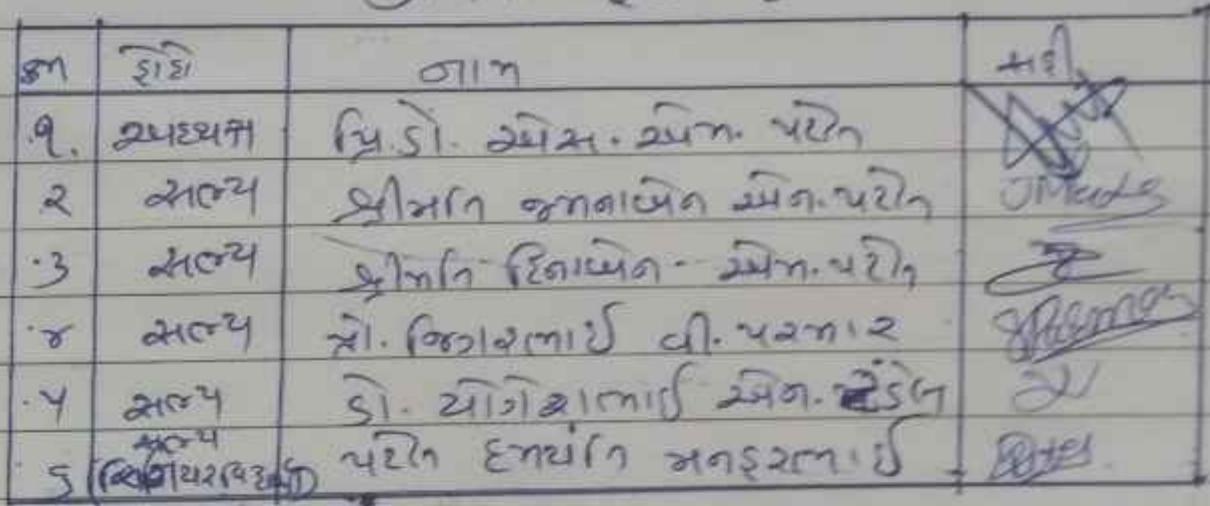 ક્રમ હોદ્દો નામ સહી
૧. અધ્યક્ષ પ્રિ.ડૉ. એસ. એમ. પટેલ
૨ સભ્ય શ્રીમતિ જમનાબેન એન. પટેલ
૩ સભ્ય શ્રીમતિ દિનાબેન એમ. પટેલ
૪ સભ્ય પ્રો. જિગરભાઈ વી. પરમાર
૫ સભ્ય ડો. યોગેશભાઈ એન. ટંડેલ
૬ સભ્ય પટેલ દમયંતિ મનહરભાઈ